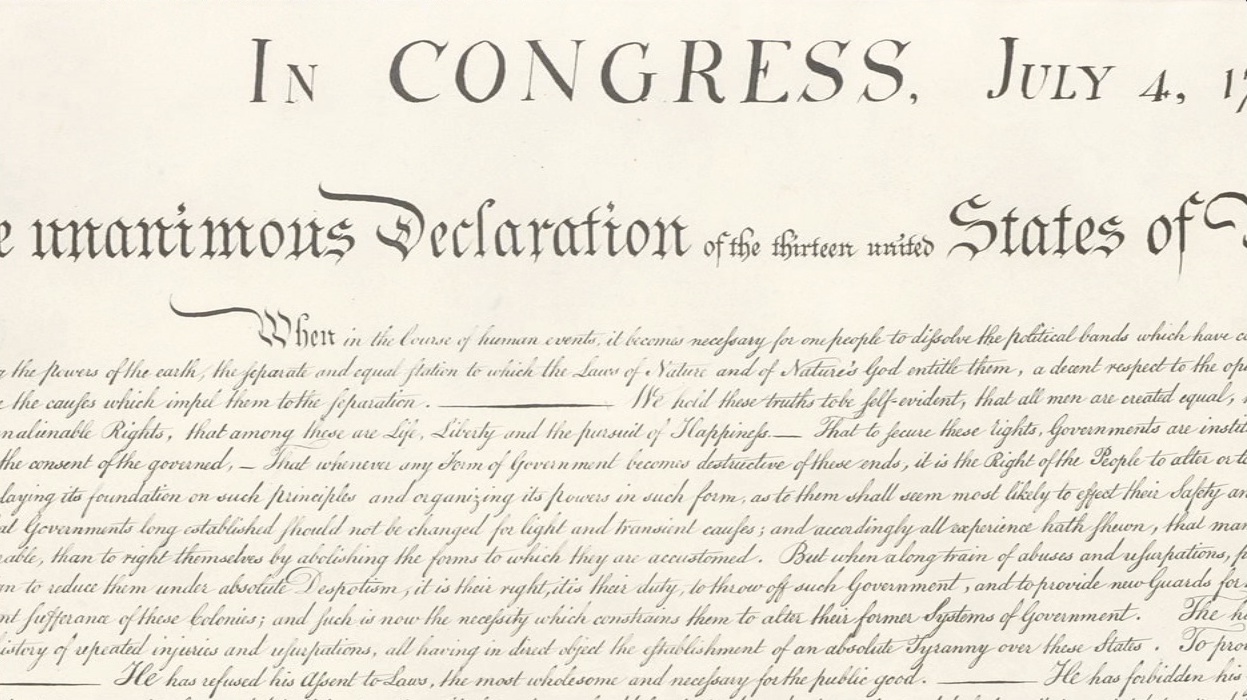 In CONGRESS, July 4, 17
e unanimous Declaration of the thirteen united States of
When in the Course of human events, it becomes necessary for one people to dissolve the political bands which have co
g the powers of the earth, the separate and equal station to which the Laws of Nature and of Nature's God entitle them, a decent respect to the opi
e the causes which impel them to the separation. ——— We hold these truths to be self-evident, that all men are created equal,
nalienable Rights, that among these are Life, Liberty and the pursuit of Happiness.— That to secure these rights, Governments are instit
the consent of the governed, — That whenever any Form of Government becomes destructive of these ends, it is the Right of the People to alter or to
laying its foundation on such principles and organizing its powers in such form, as to them shall seem most likely to effect their Safety an
at Governments long established should not be changed for light and transient causes; and accordingly all experience hath shewn, that man
rable, than to right themselves by abolishing the forms to which they are accustomed. But when a long train of abuses and usurpations, p
gn to reduce them under absolute Despotism, it is their right, it is their duty, to throw off such Government, and to provide new Guards for
nt sufferance of these Colonies; and such is now the necessity which constrains them to alter their former Systems of Government. The hi
istory of repeated injuries and usurpations, all having in direct object the establishment of an absolute Tyranny over these States. To prov
——— He has refused his Assent to Laws, the most wholesome and necessary for the public good. ——— He has forbidden his